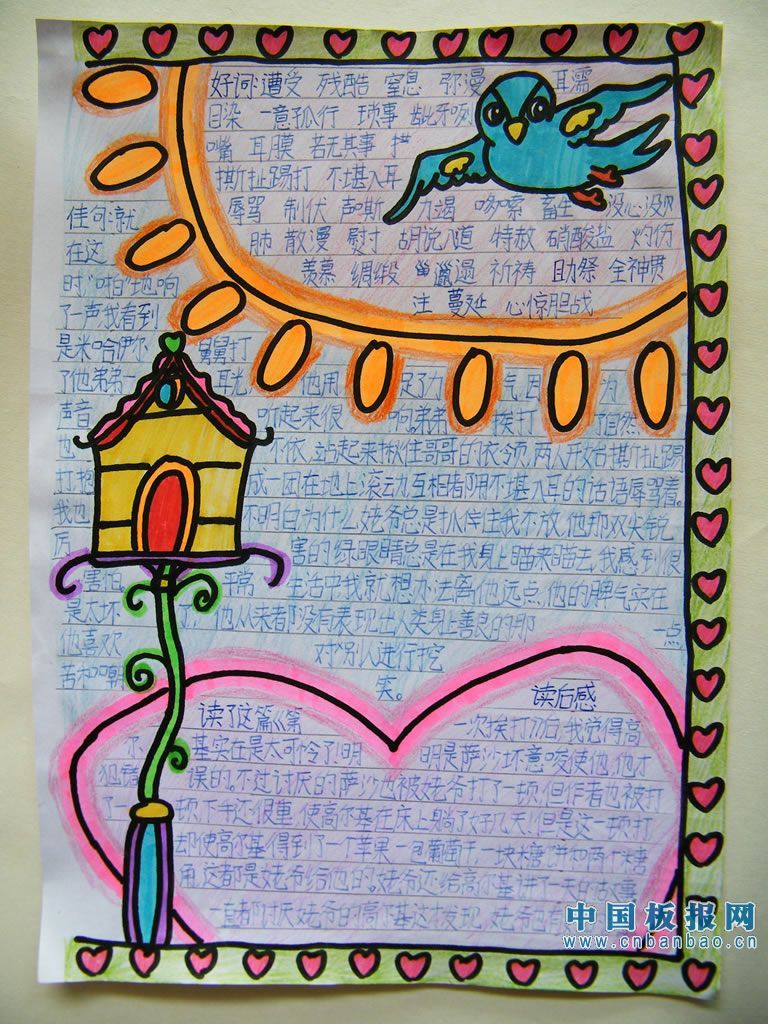 好词:遭受 残酷 窒息 弥漫 耳濡
目染 一意孤行 琐事 龇牙咧
嘴 耳膜 若无其事
撕扯踢打 不堪入耳
辱骂 制伏 声嘶 力竭 哆嗦 畜生 没心没
肺 散漫 熨寸 胡说八道 特赦 硝酸盐 灼伤
羡慕 绸缎 邋遢 祈祷 助祭 全神贯
注 蔓延 心惊胆战
佳句:就
在这
时"啪"地响
了一声,我看到
是米哈伊尔 舅舅打
了他弟弟 耳光 他用 足了力 气,因 为
声音 听起来很 响。弟弟 挨打 自然
也 不依,站起来揪住哥哥的衣领,两人开始撕扯踢
打,抱 成一团在地上滚动,互相都用不堪入耳的话语辱骂着。
我也 不明白为什么姥爷总是抓住我不放,他那双尖锐
厉 害的绿眼睛总是在我身上瞄来瞄去,我感到很
害怕, 平常 生活中我就想办法离他远点,他的脾气实在
是太坏 了,他从来都没有表现出人类身上善良的那 一点
他喜欢 对别人进行挖
苦和嘲 笑。
读后感
读了这篇《第 一次挨打》后,我觉得高
尔 基实在是太可怜了!明 明是萨沙坏意唆使他,他才
犯错 误的。不过讨厌的萨沙也被姥爷打了一顿,但作者也被打
了一 顿,下手还很重,使高尔基在床上躺了好几天!但是这一顿打
却使高尔基得到了一个苹果一包葡萄干,一块糖饼和两个糖
角,这都是姥爷给他的。姥爷还给高尔基讲了一天的故事
一直都讨厌姥爷的高尔基这才发现,姥爷也有
中国板报网
www.cnbanbao.cn